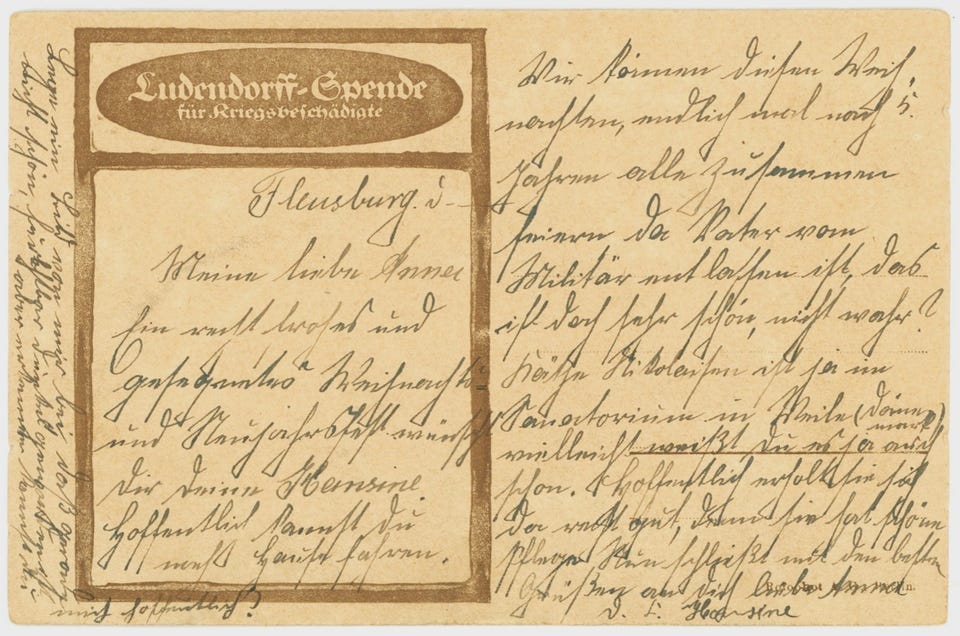 Ludendorff-Spende
für Kriegsbeschädigte
Flensburg. d
Meine liebe Annea
Ein recht frohes und
gesegnetes Weihnachts-
und Neujahrsfest wünscht
Dir deine Hansine.
Hoffentlich kannst Du
nach Hause fahren.
Wir können diesen Weih-
nachten, endlich mal nach 5.
Jahren alle zusammen
feiern da Vater vom
Militär entlassen ist, das
ist doch sehr schön, nicht wahr?
Käthe Nikolaisen ist ja im
Sanatorium in Veile (Däne-
mark)
vielleicht weißt Du es ja auch
schon. Hoffentlich erholt sie sich
da recht gut, denn sie hat schöne
Pflege. Nun schließt mit den besten
Grüßen an dich liebe Annea
d. L. Hansine
mich hoffentlich?